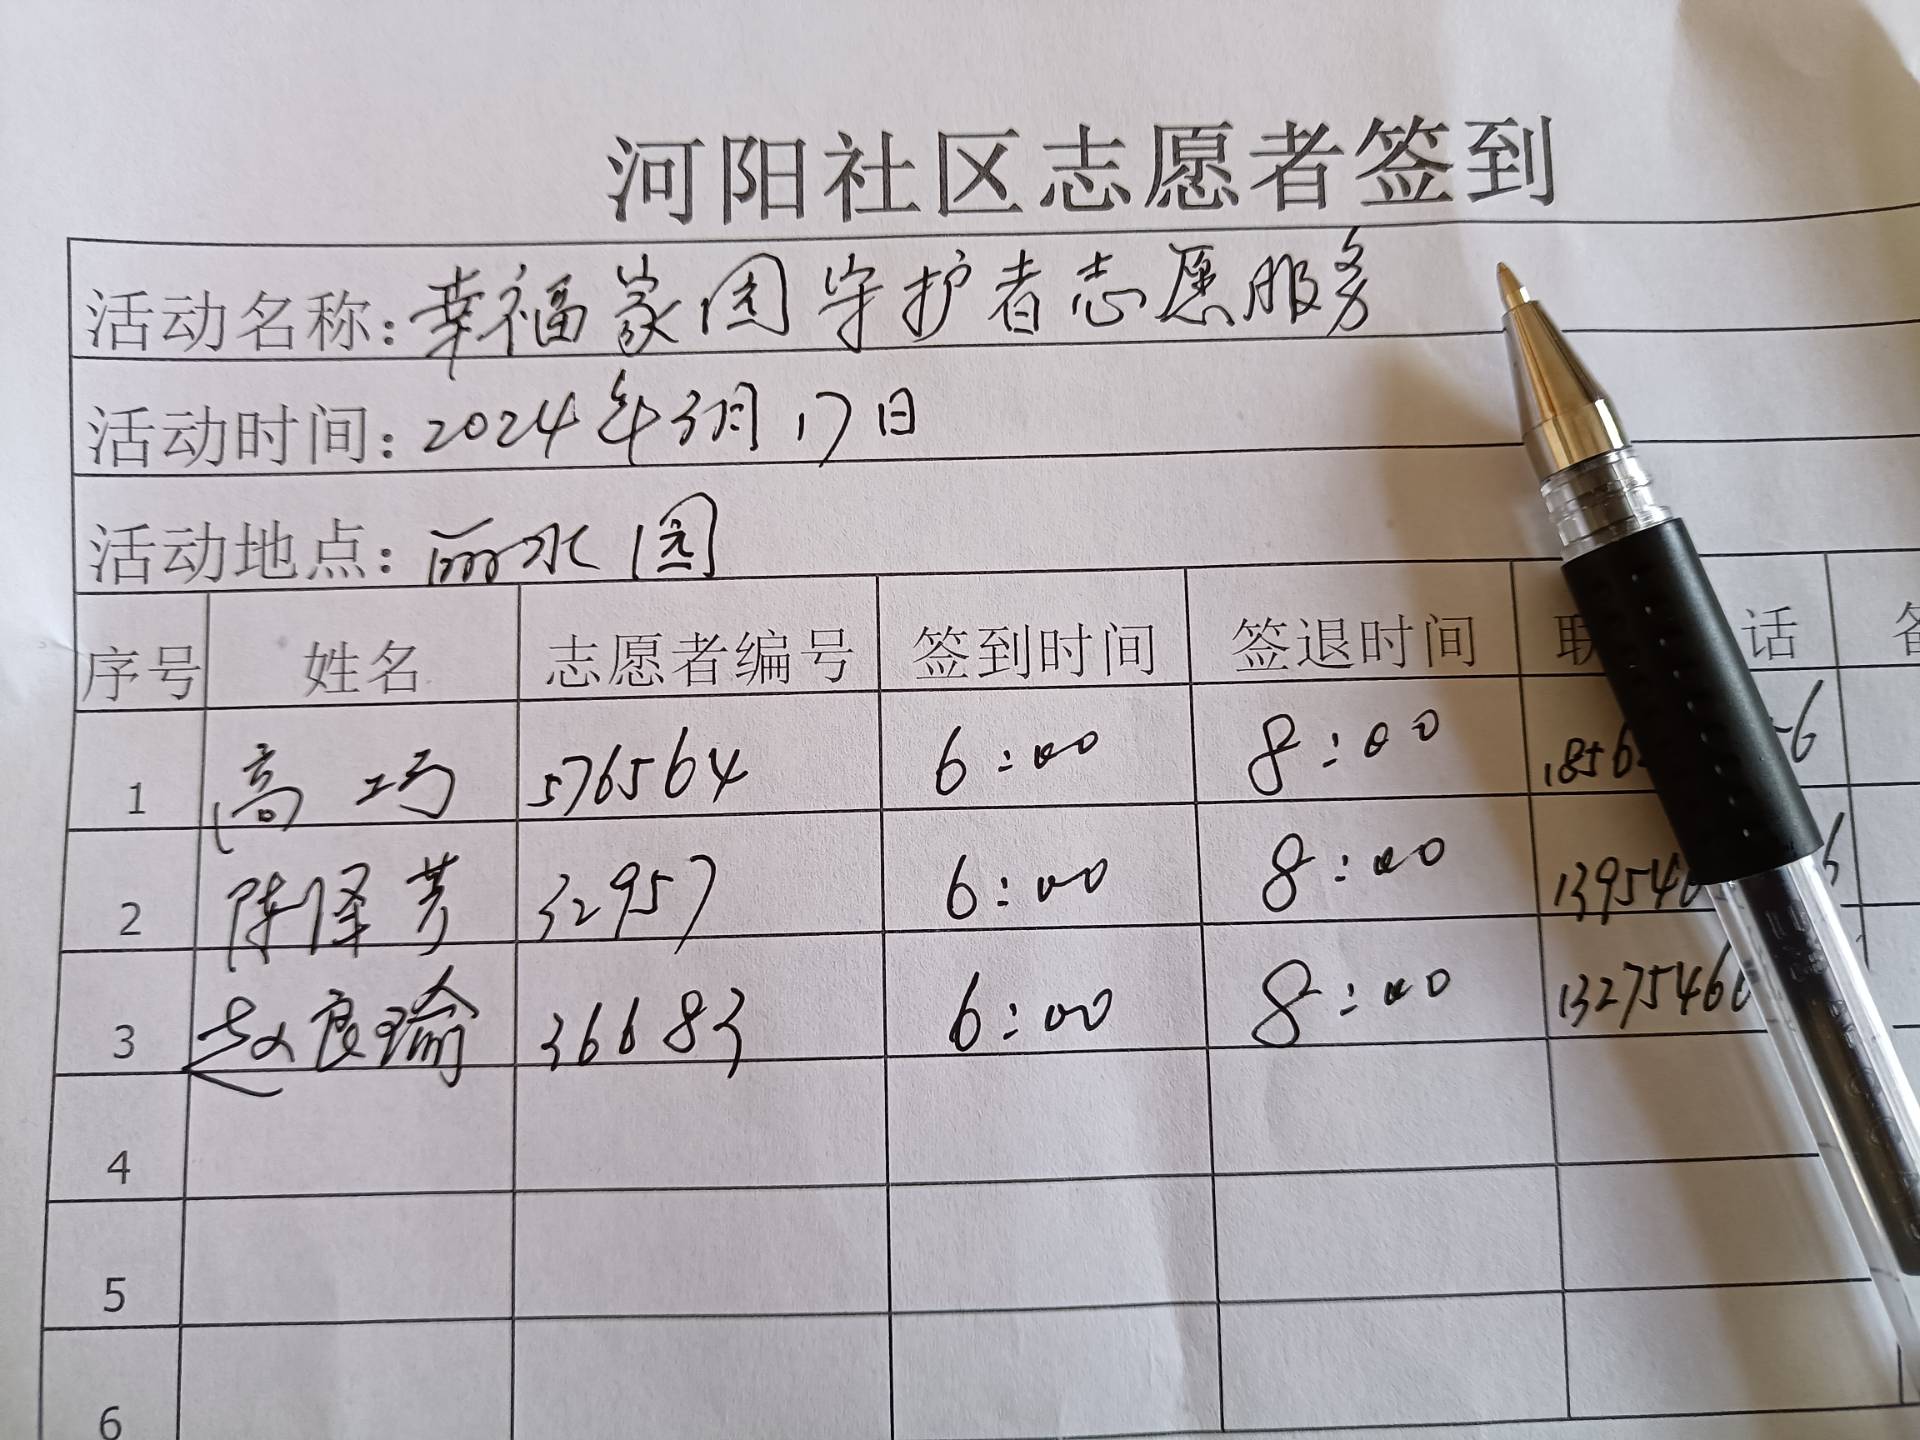 河阳社区志愿者签到
活动名称:幸福家园守护者志愿服务
活动时间:2024年3月17日
活动地点:丽水园
序号 姓名 志愿者编号 签到时间 签退时间 联 话
1 高巧 576564 6:00 8:00 1856 6
2 陈泽芳 32957 6:00 8:00 13954
3 赵良瑜 36683 6:00 8:00 1327546
4
5
6